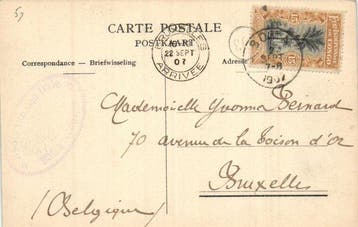 CARTE POSTALE
POSTKAART
Correspondance — Briefwisseling
Adresse
BRUXELLES
22 SEPT
07
ARRIVÉE
1907
15
15
Mademoiselle Yvonne Bernard
70 avenue de la Toison d'Or
Bruxelles
(Belgique)